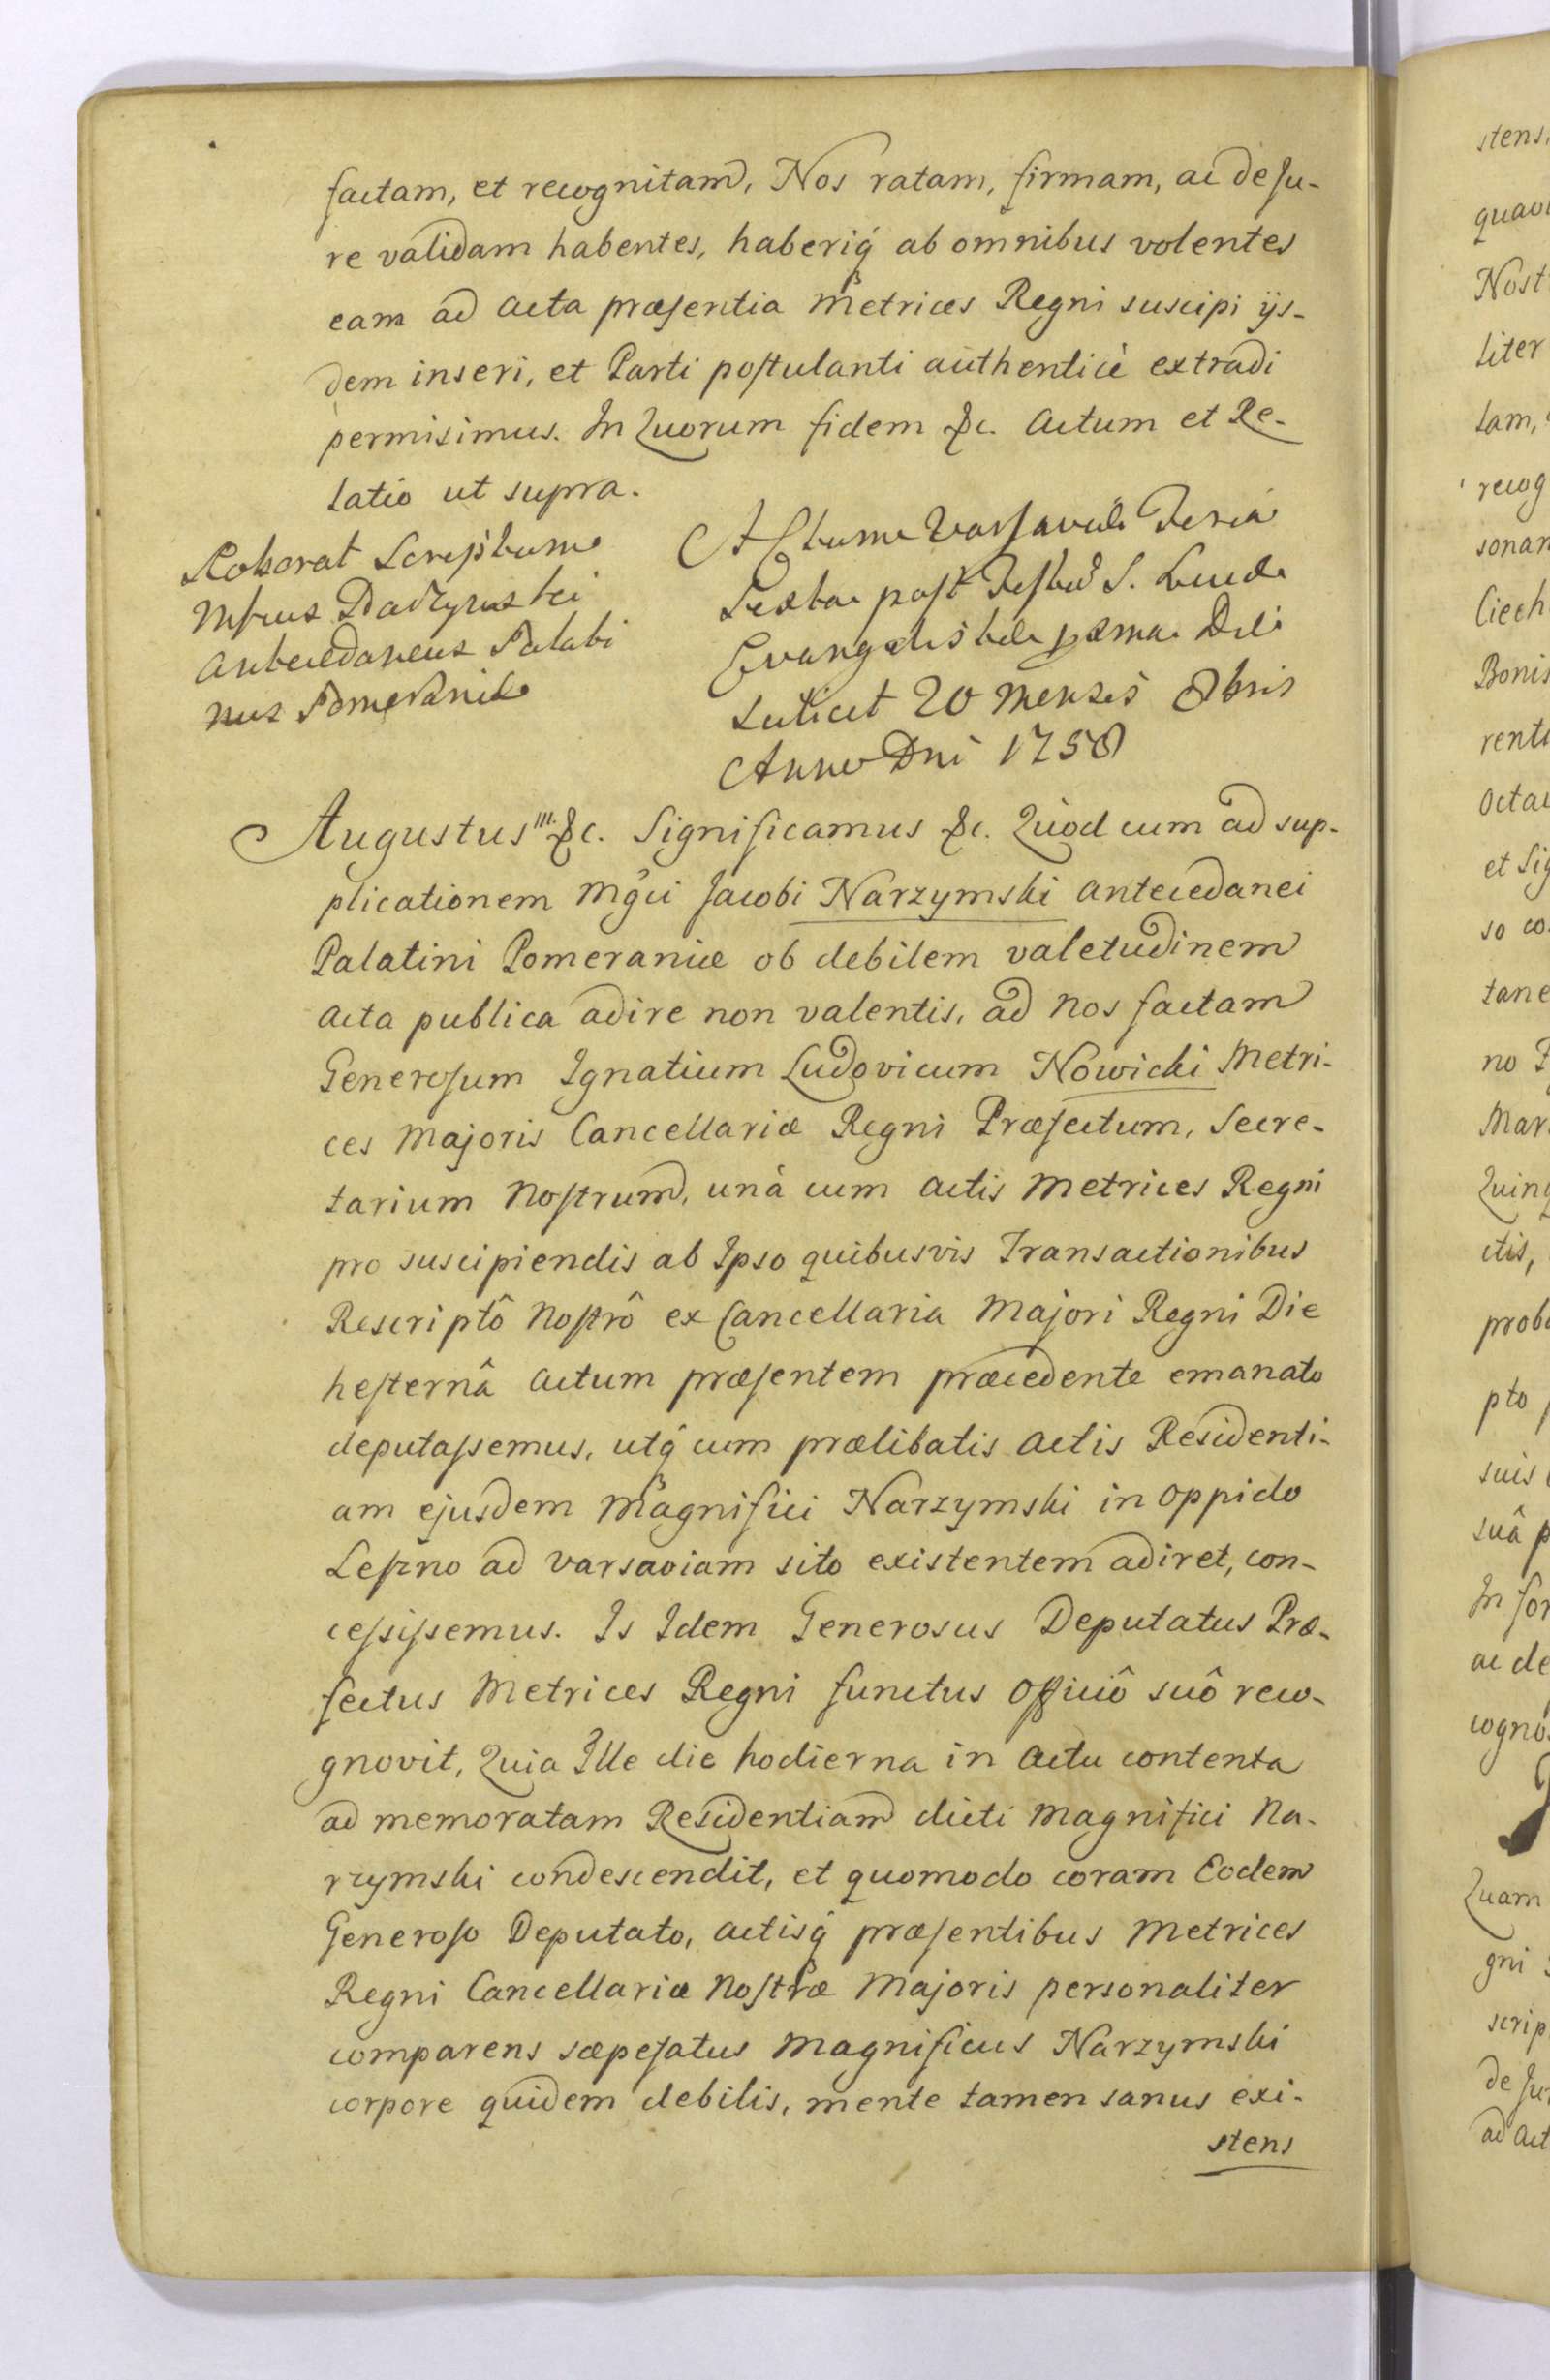 factam, et recognitam, Nos ratam, firmam, ac de Ju-
re validam habentes, haberiq́ ab omnibus volentes
eam ad acta præsentia Metrices Regni suscipi ijs-
dem inseri, et Parti postulanti authenticè extradi
permisimus. In Quorum fidem &c. Actum et Re-
latio ut supra.
Roborat Scriptum
Narzymski
Antecedaneus Palati
nus Pomeraniæ
Actum Varsaviæ Feria
Sexta post Festum S. Lucæ
Evangelistæ pxma Die
Scilicet 20 Mensis 8bris
Anno Dni 1758
Augustus III. &c. Significamus &c. Quod cum ad sup-
plicationem Mgci Jacobi Narzymski antecedanei
Palatini Pomeraniæ ob debilem valetudinem
acta publica adire non valentis, ad Nos factam
Generosum Ignatium Ludovicum Nowicki Metri-
ces Majoris Cancellariæ Regni Præfectum, Secre-
tarium Nostrum, unà cum actis Metrices Regni
pro suscipiendis ab Ipso quibusvis Transactionibus
Rescriptô Nostrô ex Cancellaria Majori Regni Die
hesternâ actum præsentem præcedente emanato
deputassemus, utq́ cum prælibatis actis Residenti-
am ejusdem Magnifici Narzymski in oppido
Leszno ad Varsaviam sito existentem adiret, con-
cessissemus. Is Idem Generosus Deputatus Præ-
fectus Metrices Regni functus officiô suô reco-
gnovit, Quia Ille die hodierna in actu contenta
ad memoratam Residentiam dicti Magnifici Na-
rzymski condescendit, et quomodo coram Eodem
Generoso Deputato, actisq́ præsentibus Metrices
Regni Cancellariæ Nostræ Majoris personaliter
comparens sæpefatus Magnificus Narzymski
corpore quidem debilis, mente tamen sanus exi-
stens